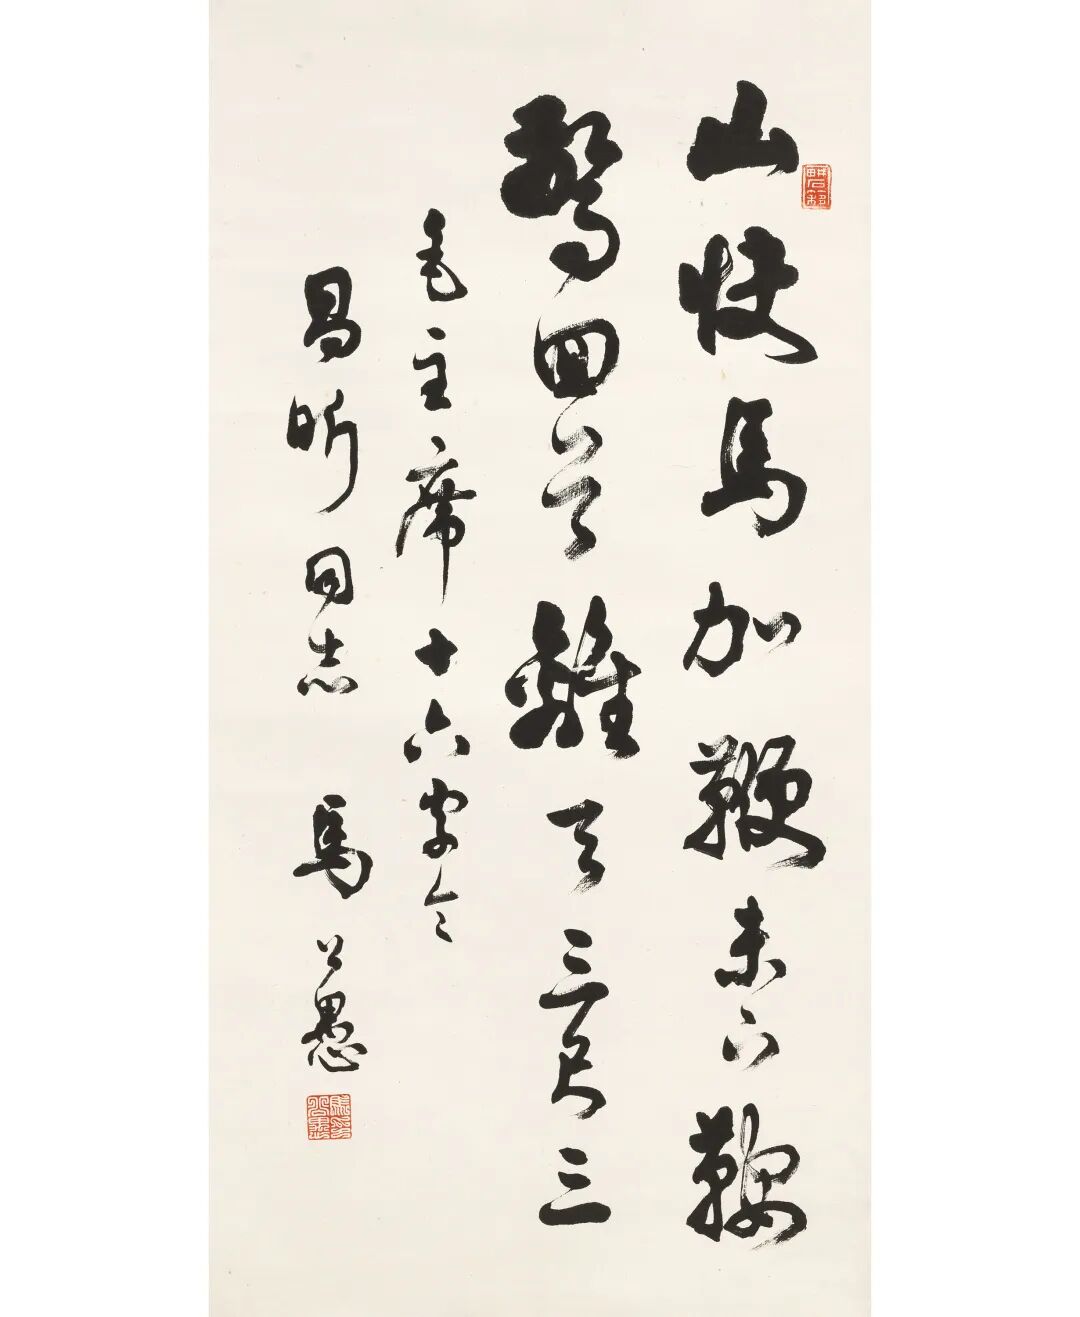 畊石簃
山快馬加鞭未下鞍
驚回首離天三尺三
毛主席十六字令
昌昕同志 馬公愚